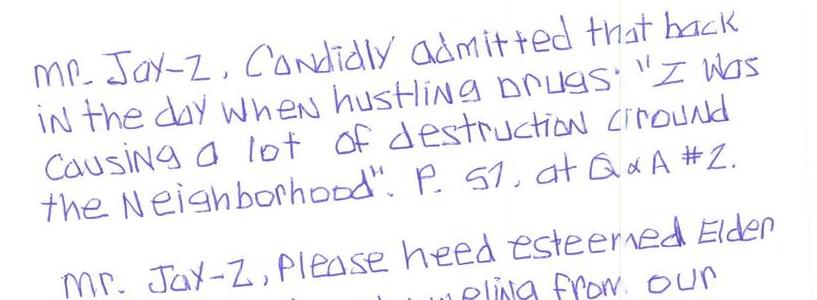 Mr. Jay-Z, Candidly admitted that back
in the day when hustling Drugs: "I was
causing a lot of destruction around
the Neighborhood". P. 57, at Q & A #2.
Mr. Jay-Z, please heed esteemed Elder
from our